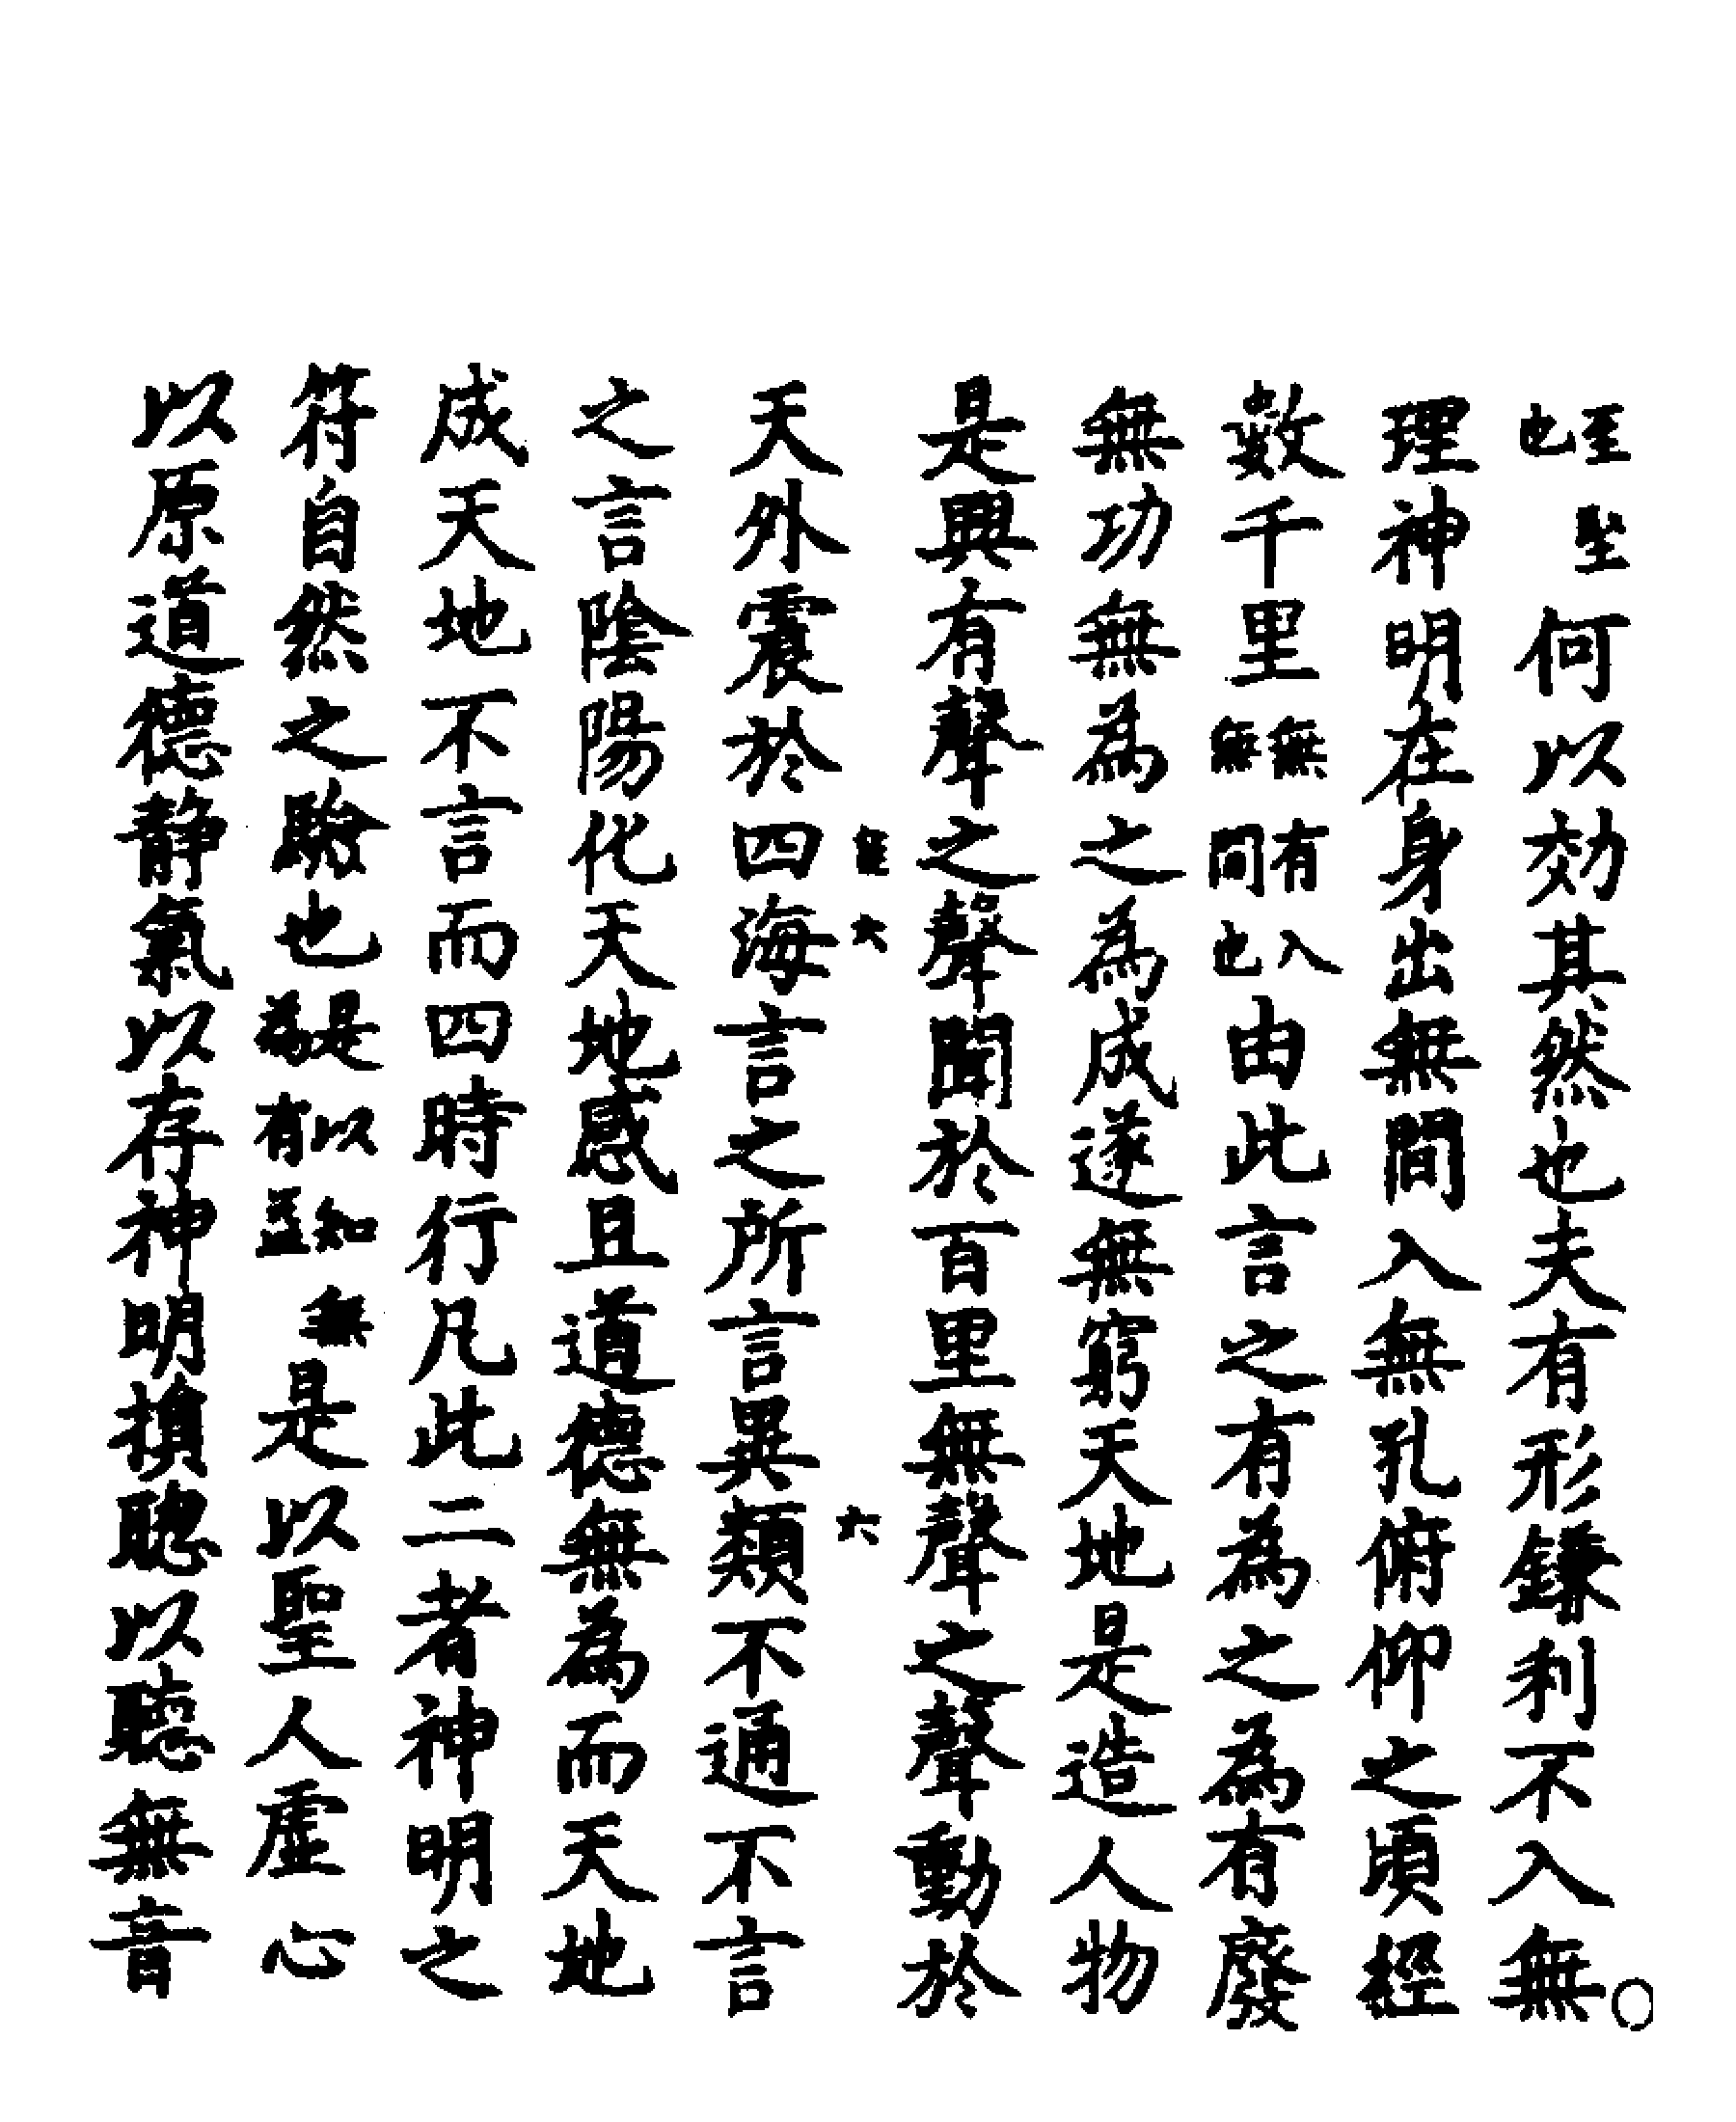 至堅也何以効其然也夫有形鎌利不入無
理神明在身出無間入無孔俯仰之頃經
數千里無有入無間也由此言之有為之為有廢
無功無為之為成遂無窮天地是造人物
是興有聲之聲聞於百里無聲之聲動於
天外震於四海言之所言異類不通不言
之言陰陽化天地感且道德無為而天地
成天地不言而四時行凡此二者神明之
符自然之驗也是以知無為有益是以聖人虛心
以原道德静氣以存神明損聰以聽無音